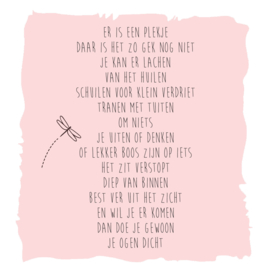 ER IS EEN PLEKJE
DAAR IS HET ZO GEK NOG NIET
JE KAN ER LACHEN
VAN HET HUILEN
SCHUILEN VOOR KLEIN VERDRIET
TRANEN MET TUITEN
OM NIETS
JE UITEN OF DENKEN
OF LEKKER BOOS ZIJN OP IETS
HET ZIT VERSTOPT
DIEP VAN BINNEN
BEST VER UIT HET ZICHT
EN WIL JE ER KOMEN
DAN DOE JE GEWOON
JE OGEN DICHT